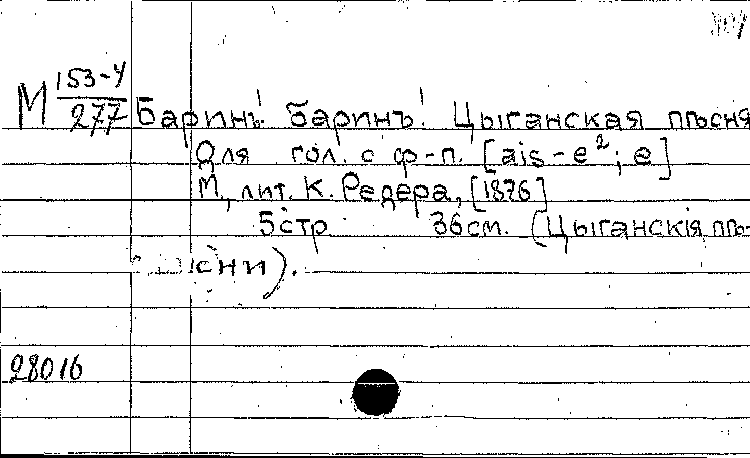 М 153-4/277 Баринъ! баринъ! Цыганская пѣсня
Для гол. с ф-п. [ais-e²; e]
М., лит. К. Редера, [1876]
5стр 36см. (Цыганскія пѣ-
сни).
28016